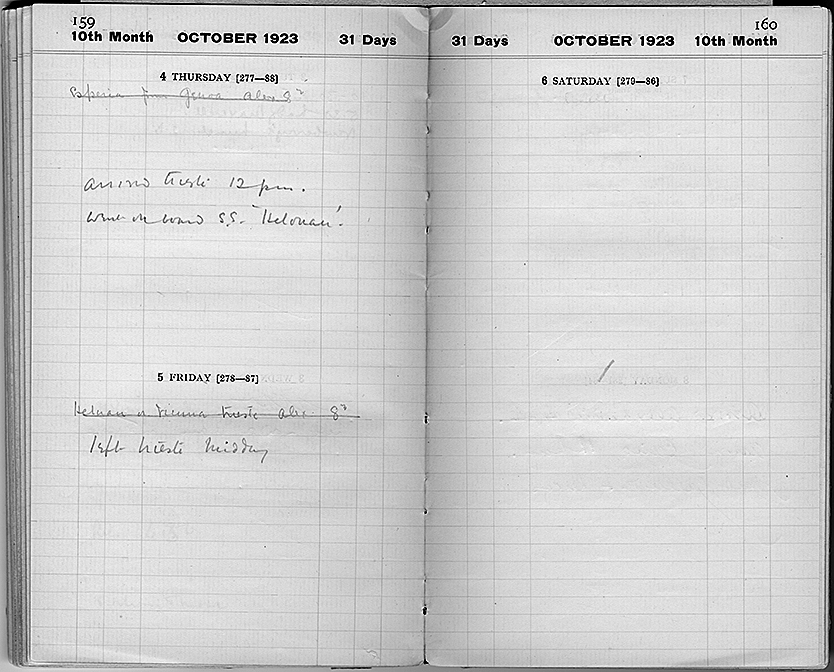 159
10th Month OCTOBER 1923 31 Days
4 THURSDAY [277—88]
Esperia from Genoa Alex 8th
arrived Trieste 12 pm.
went on board S.S. "Helouan".
5 FRIDAY [278—87]
Helouan or Vienna Trieste Alex 8th
left Trieste Midday
160
31 Days OCTOBER 1923 10th Month
6 SATURDAY [279—86]